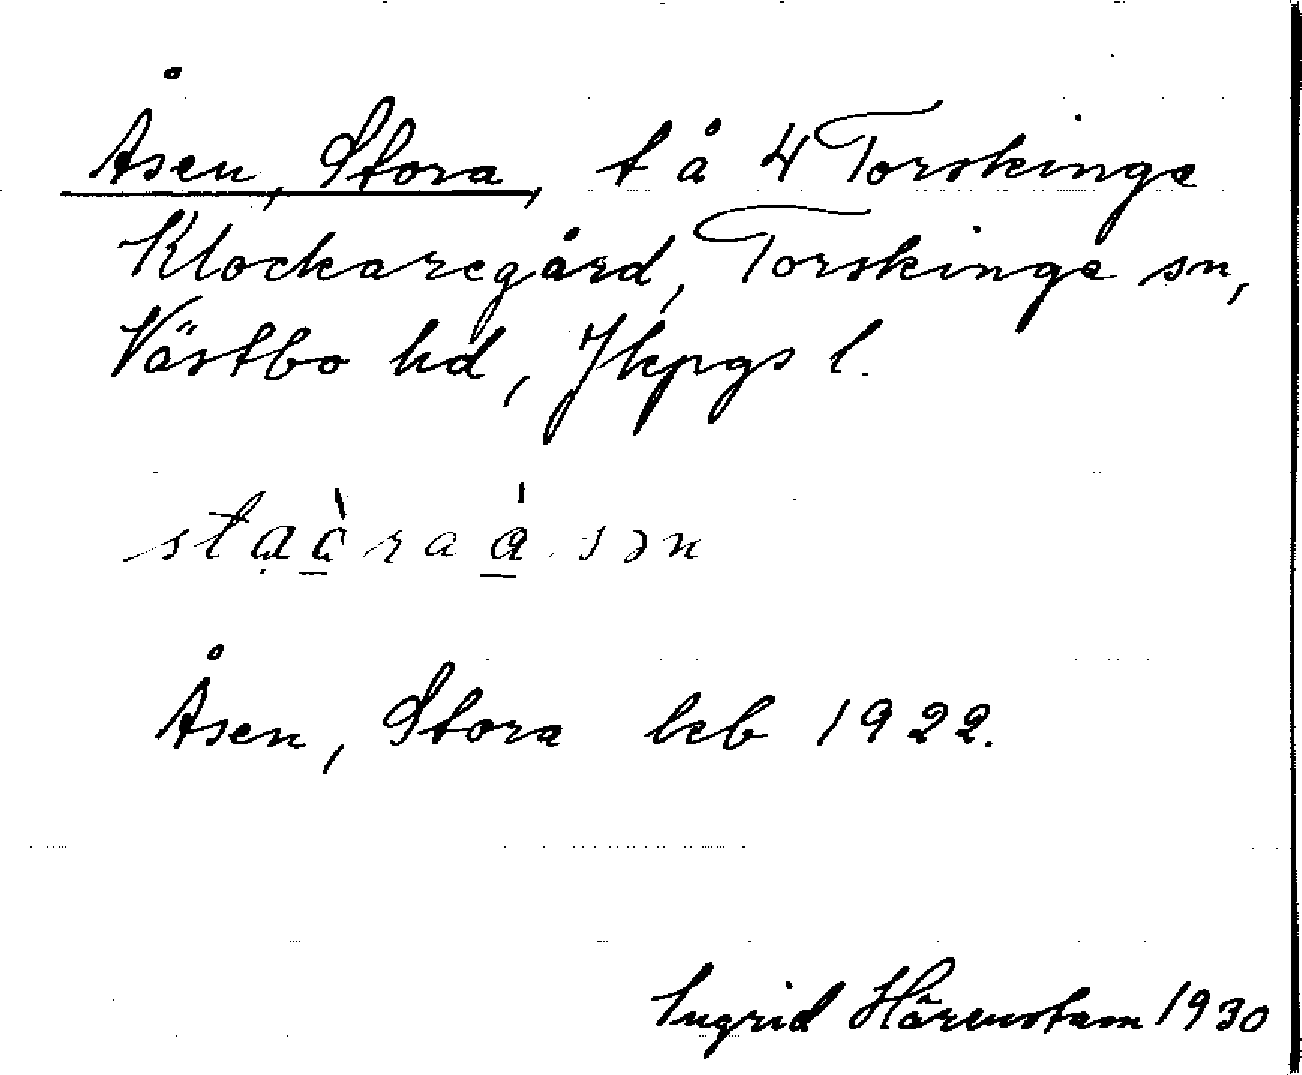 Åsen, Stora, t å 4 Torskinge
Klockaregård, Torskinge sn,
Västbo hd, Jkpgs l.
Åsen, Stora kb 1922.
Ingrid Härenstam 1930